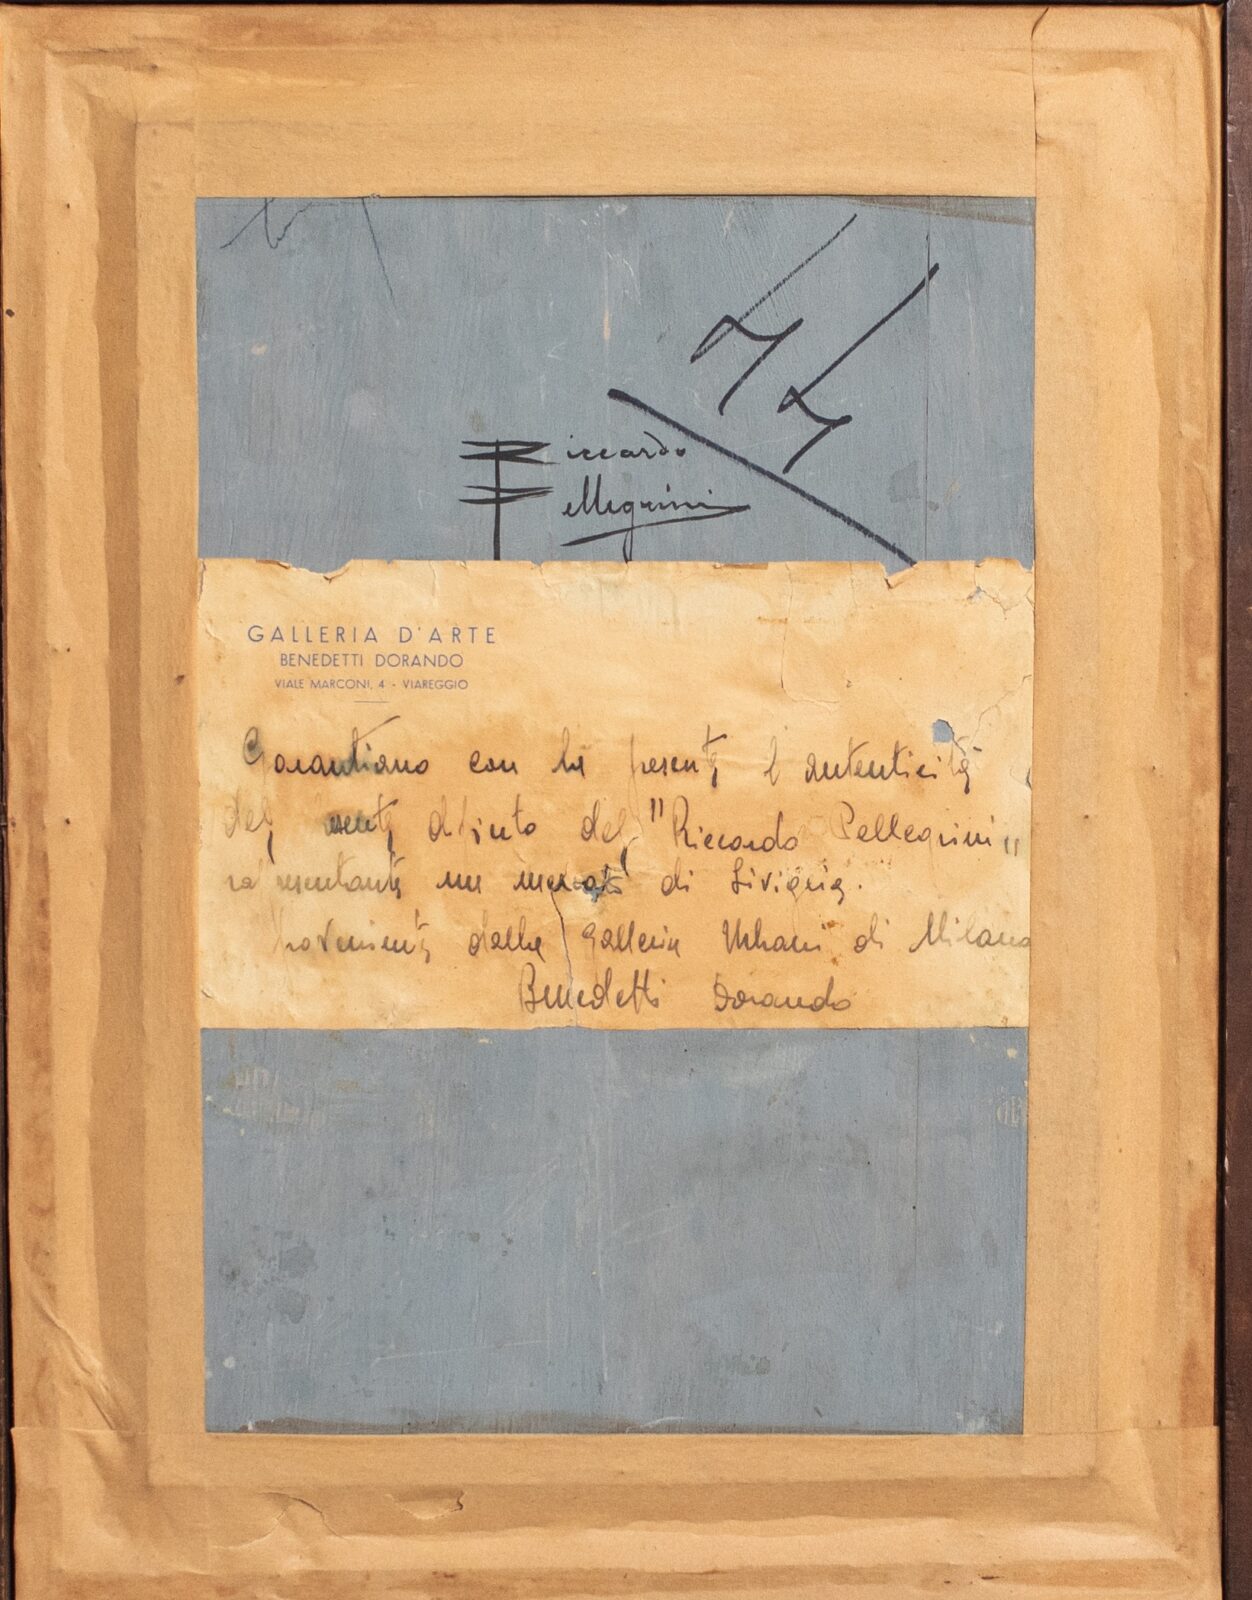 Riccardo
Pellegrini
GALLERIA D'ARTE
BENEDETTI DORANDO
VIALE MARCONI, 4 - VIAREGGIO
Garantiamo con la presente l'autenticità
del dipinto del "Riccardo Pellegrini"
un mercato di Siviglia.
dalla Galleria di Milano
Benedetti Dorando